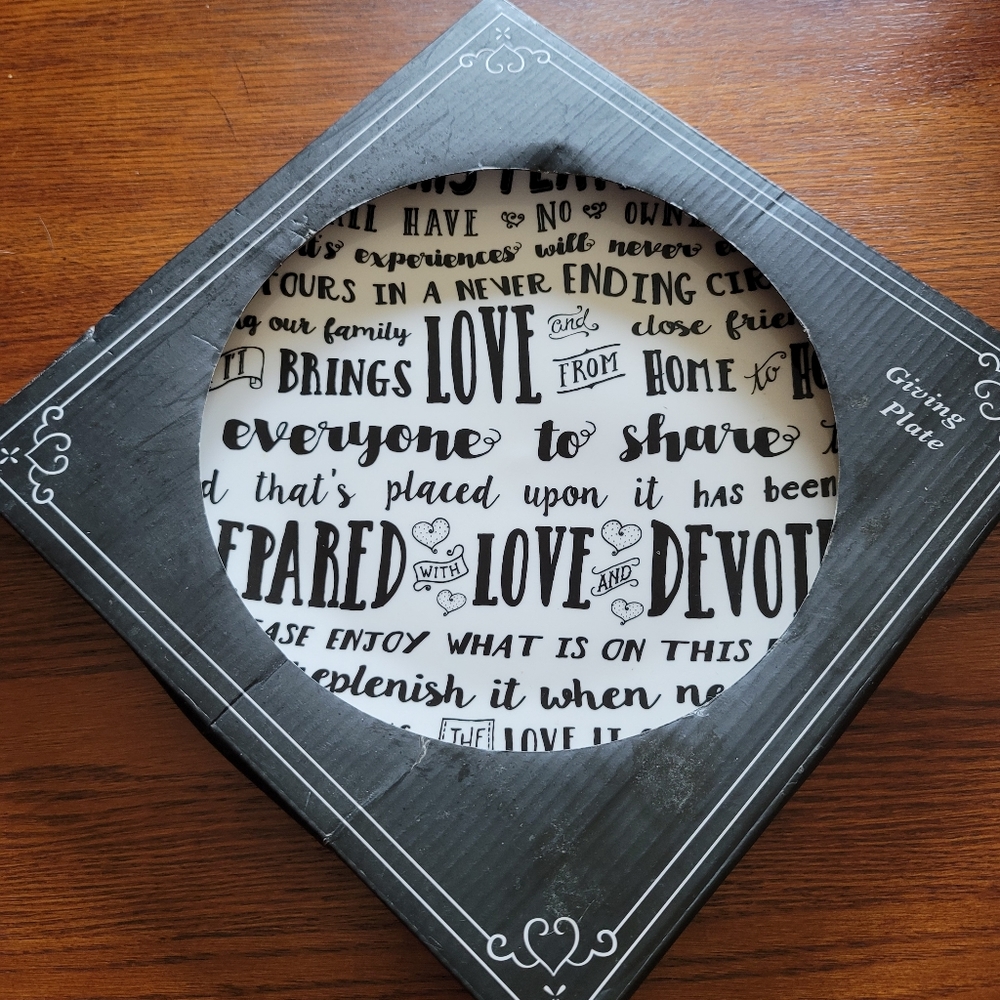 HAVE NO
experiences will never
OURS IN A NEVER ENDING
our family LOVE and close
IT BRINGS LOVE FROM HOME to
everyone to share
that's placed upon it has been
WITH LOVE AND
ENJOY WHAT IS ON THIS
it when
THE LOVE IT
Giving
Plate